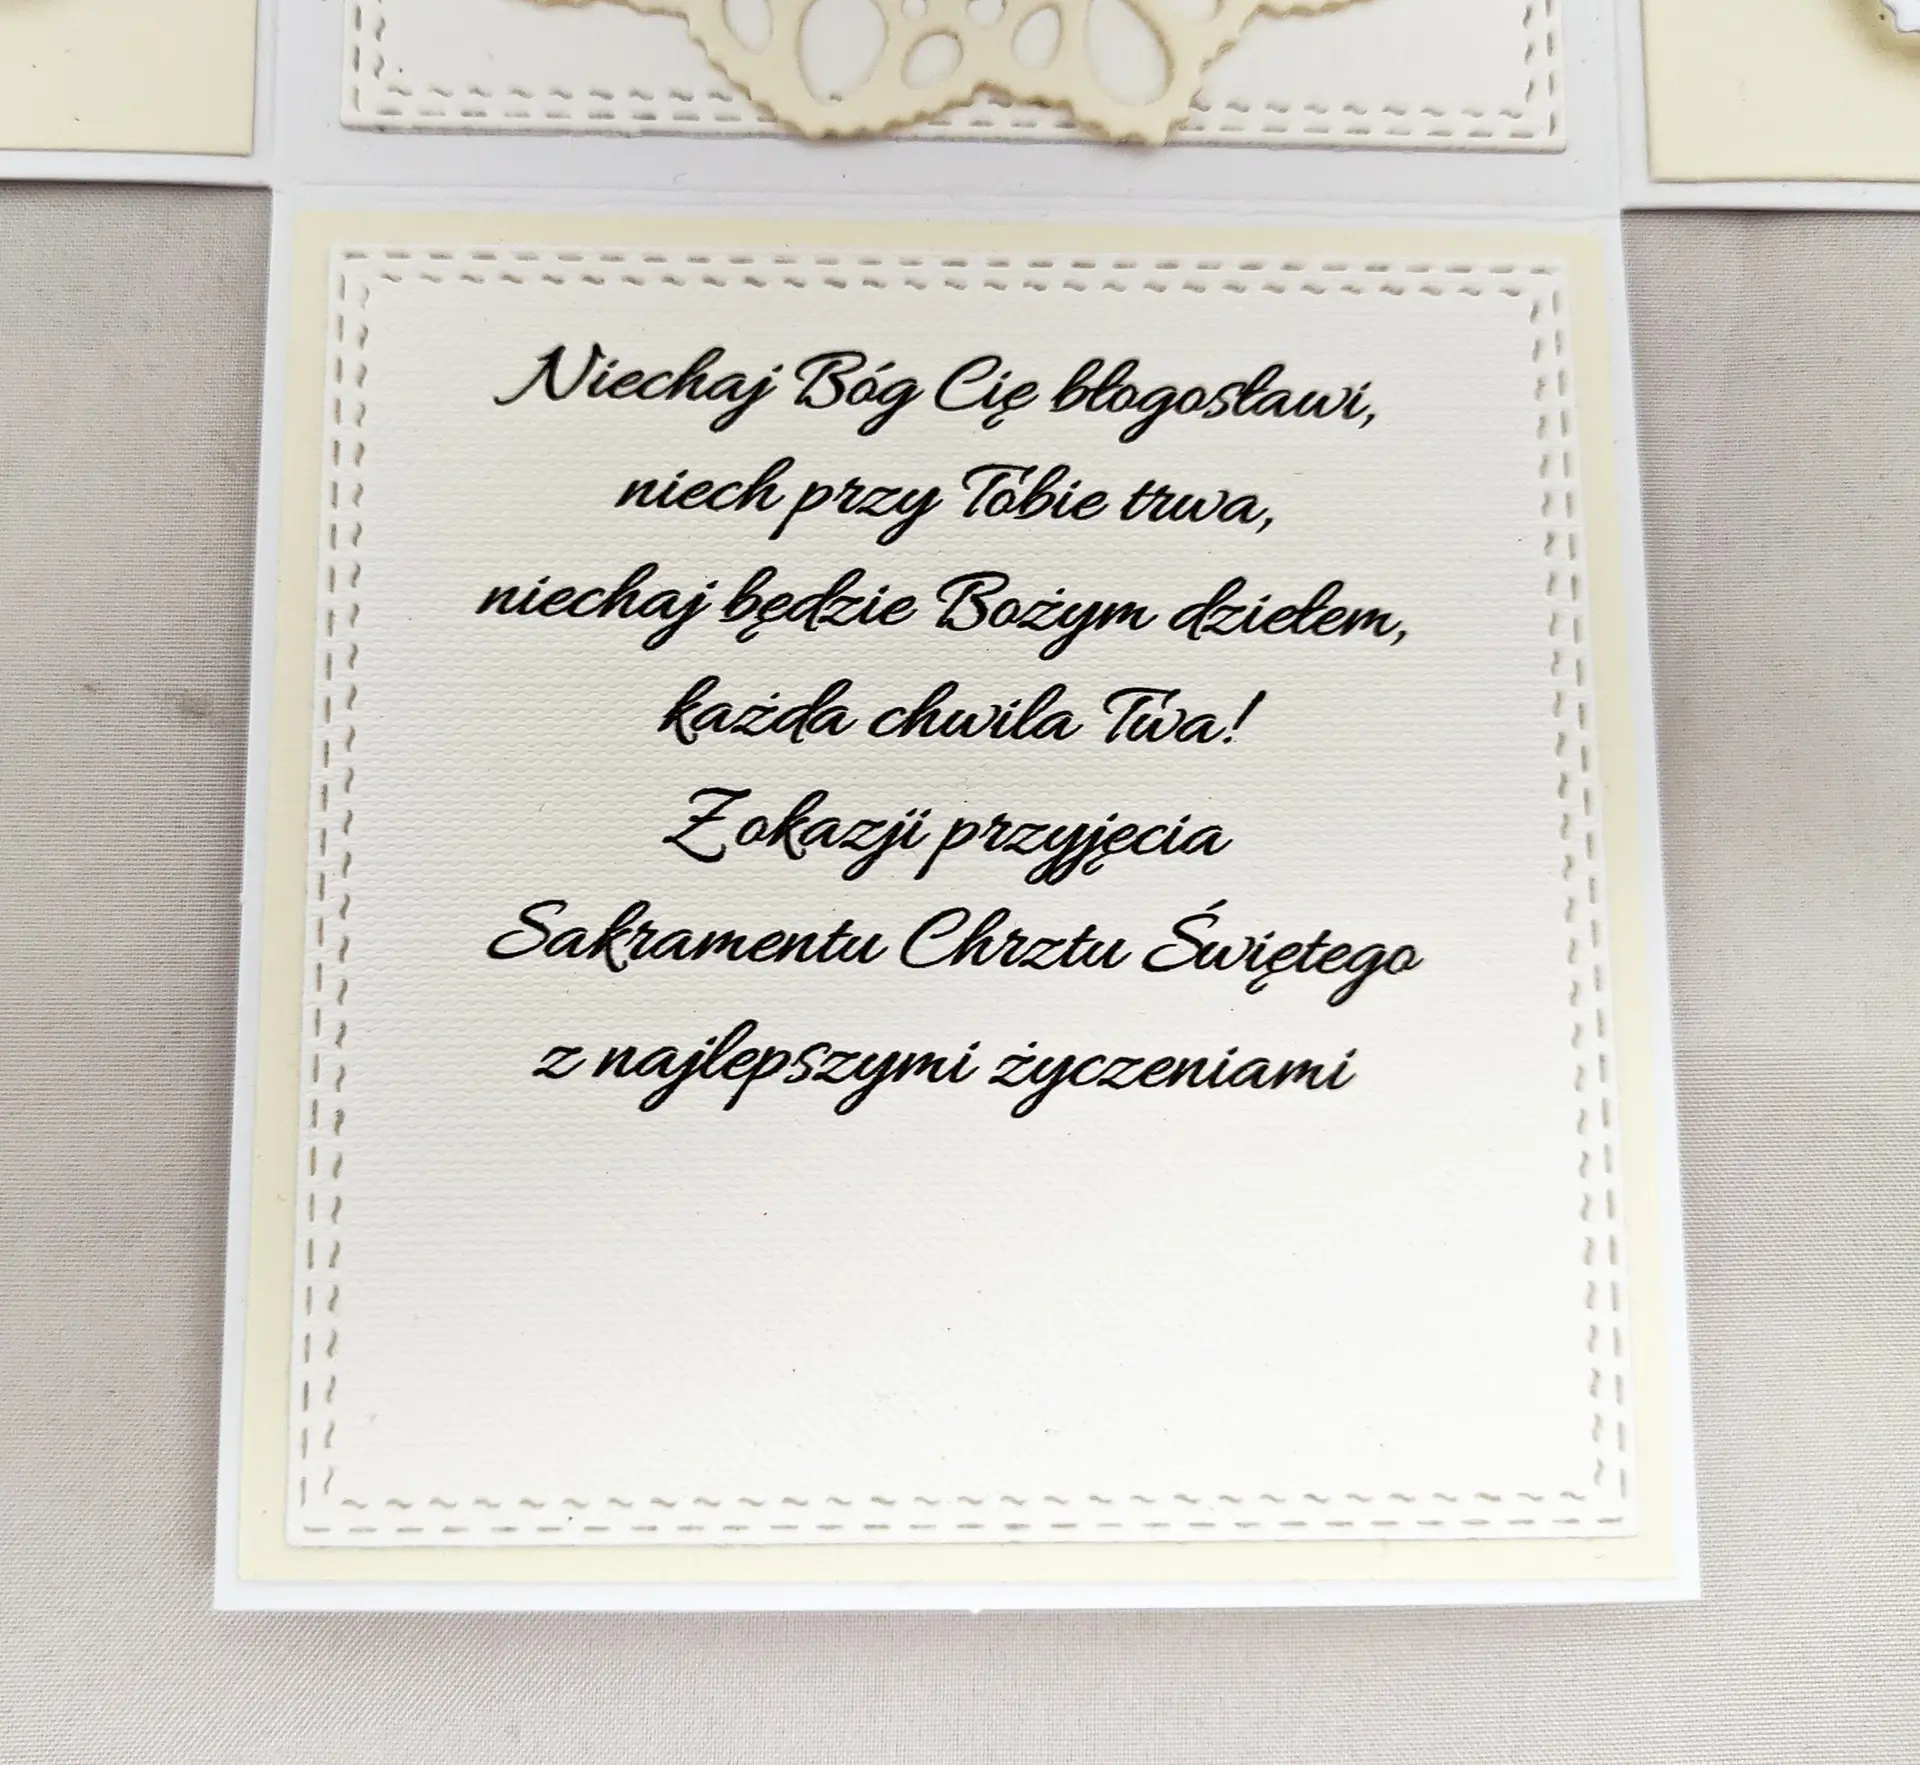 Niechaj Bóg Cię błogosławi,
niech przy Tobie trwa,
niechaj będzie Bożym dziełem,
każda chwila Twa!
Z okazji przyjęcia
Sakramentu Chrztu Świętego
z najlepszymi życzeniami